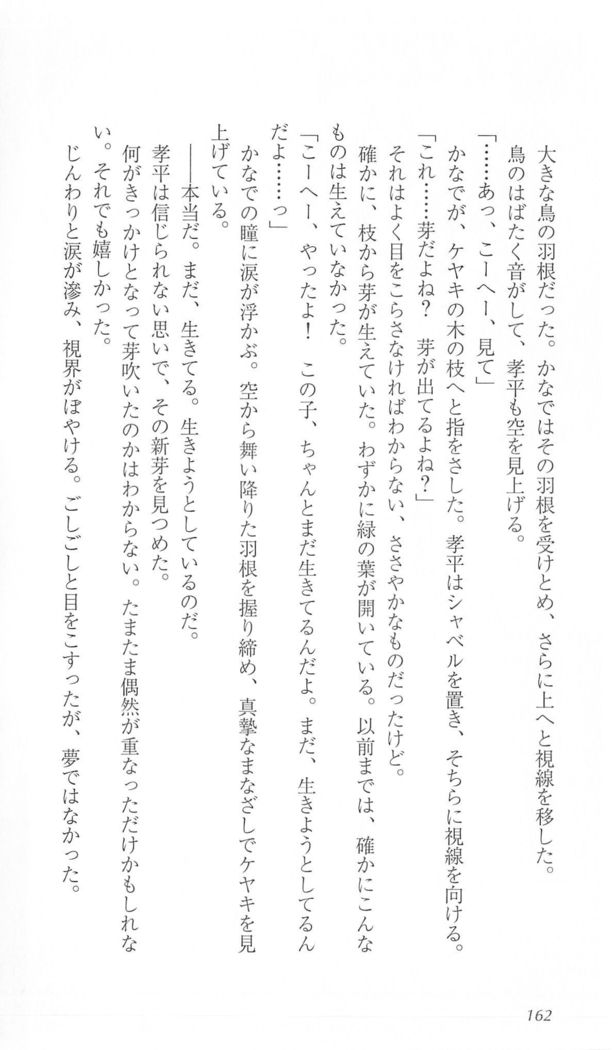 大きな鳥の羽根だった。かなではその羽根を受けとめ、さらに上へと視線を移した。
鳥のはばたく音がして、孝平も空を見上げる。
「……あっ、こーへー、見て」
かなでが、ケヤキの木の枝へと指をさした。孝平はシャベルを置き、そちらに視線を向ける。
「これ……芽だよね？　芽が出てるよね？」
それはよく目をこらさなければわからない、ささやかなものだったけど。
確かに、枝から芽が生えていた。わずかに緑の葉が開いている。以前までは、確かにこんな
ものは生えていなかった。
「こーへー、やったよ！　この子、ちゃんとまだ生きてるんだよ。まだ、生きようとしてるん
だよ……っ」
かなでの瞳に涙が浮かぶ。空から舞い降りた羽根を握り締め、真摯なまなざしでケヤキを見
上げている。
――本当だ。まだ、生きてる。生きようとしているのだ。
孝平は信じられない思いで、その新芽を見つめた。
何がきっかけとなって芽吹いたのかはわからない。たまたま偶然が重なっただけかもしれな
い。それでも嬉しかった。
じんわりと涙が滲み、視界がぼやける。ごしごしと目をこすったが、夢ではなかった。
162